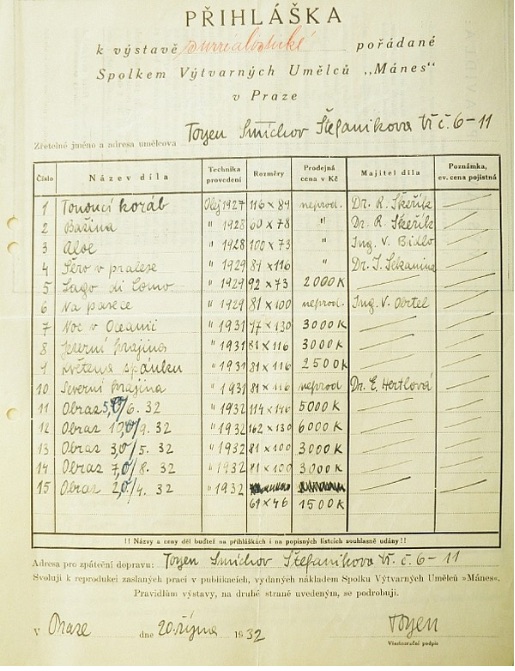 PŘIHLÁŠKA
k výstavě surrealistické pořádané
Spolkem Výtvarných Umělců „Mánes“
v Praze
Zřetelné jméno a adresa umělcova Toyen Smíchov Štefanikova tř. č. 6-11
Číslo Název díla Technika provedení Rozměry Prodejná cena v Kč Majitel díla Poznámka, ev. cena pojistná
1 Tonoucí koráb Olej 1927 116 x 89 neprod. Dr. R. Škeřík
2 Bažina " 1928 60 x 78 " Dr. R. Škeřík
3 Aloe " 1928 100 x 73 " Ing. V. Bidlo
4 v pralese " 1929 116 " Dr.
5 Lago di Como " 1929 92 x 73 2000 K
6 Na pasece " 1929 81 x 100 neprod. Ing. V. Obrtel
7 Noc v Oceanii " 1931 77 x 130 3000 K
8 Jezerní krajina " 1931 81 x 116 3000 K
9 Květena spánku " 1931 81 x 116 2500 K
10 Severní krajina " 1931 81 x 116 neprod Dr. E. Hertlová
11 Obraz 32 " 1932 114 x 146 5000 K
12 Obraz 32 " 1932 162 x 130 6000 K
13 Obraz 32 " 1932 81 x 100 3000 K
14 Obraz 32 " 1932 81 x 100 3000 K
15 Obraz 32 " 1932
61 x 46 1500 K
!! Názvy a ceny děl buďtež na přihláškách i na popisných lístcích souhlasně udány !!
Adresa pro zpáteční dopravu: Toyen Smíchov Štefanikova tř. č. 6-11
Svoluji k reprodukci zaslaných prací v publikacích, vydaných nákladem Spolku Výtvarných Umělců »Mánes«.
Pravidlům výstavy, na druhé straně uvedeným, se podrobuji.
V Praze dne 20. října 1932 Toyen
Vlastnoruční podpis